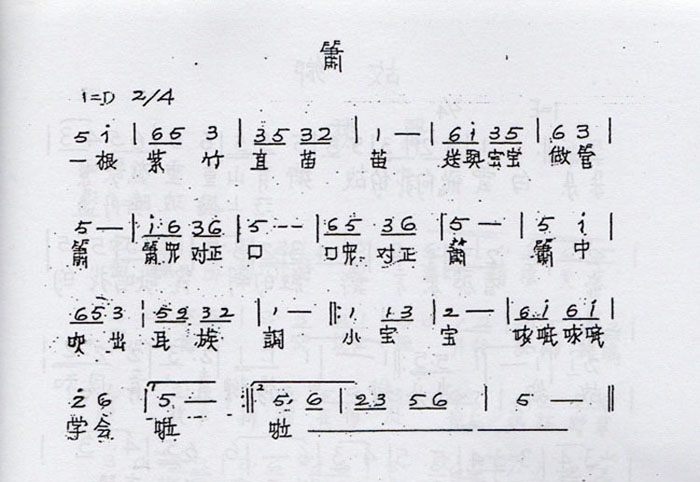 簫
1=D 2/4
5 i | 65 3 | 35 32 | 1 — | 6i 35 | 63 |
一根 紫竹 直苗 苗 送與宝宝 做管
5 — | i6 36 | 5 -- | 65 36 | 5 — | 5 i |
簫 簫兕对正 口 口兕对正 簫 簫中
653 | 52 32 | 1 — |: 1 13 | 2 — | 6i 6i |
吹出 民族 調 小宝 宝 咳哦咳哦
26 |1 5 — :|2 5. 6 | 23 56 | 5 — ||
学会 啦 啦